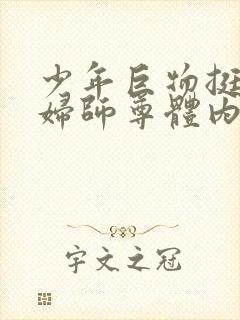 少年巨物挺
婦師尊體內
宇文之冠